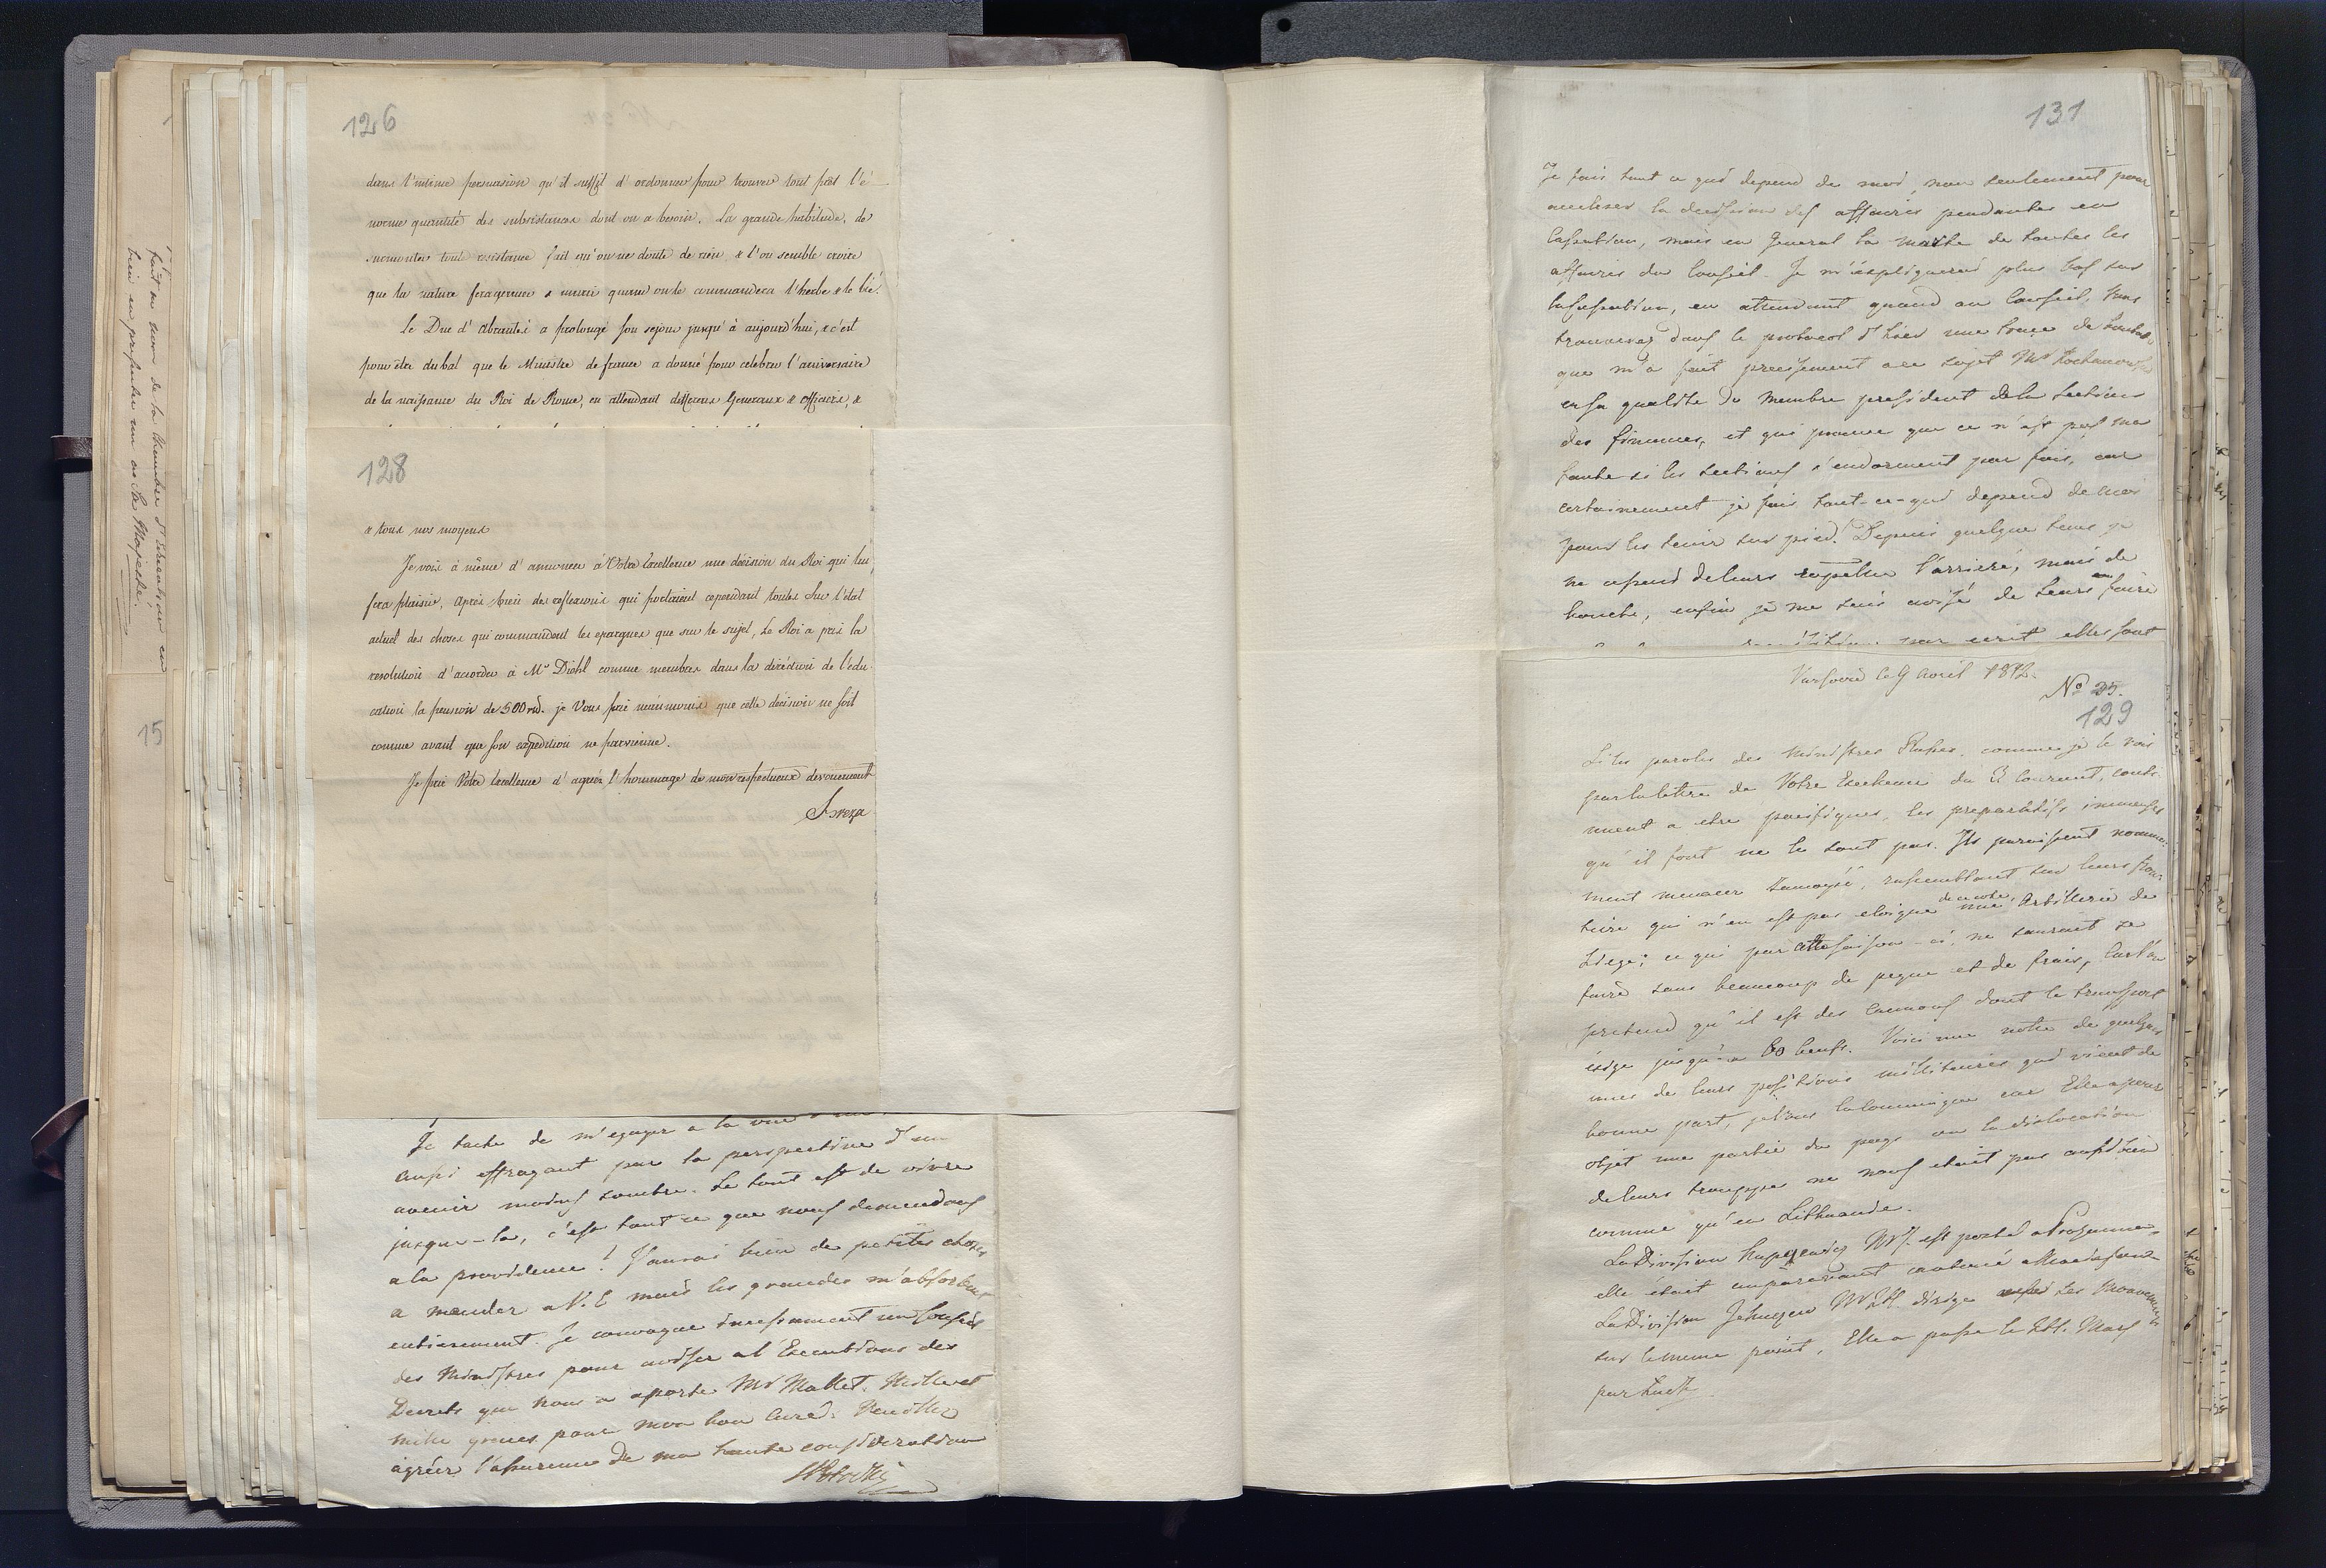 fait au nom de la
bien en présenter un au Sa Majesté.
15
126
dans l'intime persuasion qu'il suffit d'ordonner pour trouver tout prêt l'é
norme quantité des subsistances dont on a besoin. La grande habitude, de
surmonter toute resistance fait qu'on ne doute de rien, & l'on semble croire
que la nature fera germer & murir quand on le commandera l'herbe & le blé.
Le Duc d'Abrantés a prolongé son sejour jusqu'à aujourd'hui, & c'est
pour être du bal que le Ministre de france a donné pour celebrer l'aniversaire
de la naissance du Roi de Rome, en attendant differens Generaux & officiers, &
128
& tous nos moyens
Je suis à même d'annoncer à Votre Excellence une décision du Roi qui lui
fera plaisir, après bien des reflexions qui portaient cependant toutes sur l'état
actuel des choses qui commandent les epargnes que sur le sujet, Le Roi a pris la
resolution d'accorder à Mr Diehl comme membre dans la diréction de l'edu
cation la pension de 500 rd. je Vous prie néanmoins que cette décision ne soit
connue avant que son expedition ne parvienne.
Je prie Votre Excellence d'agréer l'hommage de mon respectueux devouement
Breza
Je tache de m'egayer a la vue
aussi effrayant par la perspective d'un
avenir moins sombre. Le tout est de vivre
jusque-la, c'est tout ce que nous demandons
a la providence! J'aurai bien de petites choses
a mander a V. E mais les grandes m'absorbent
entierement. Je convoque incessamment un Conseil
des Ministres pour aviser a l'Execution des
Decrets que nous a aporté Mr Mallet. Mille et
mille graces pour mon bon Curé. Veuillez
agréer l'assurance de ma haute consideration
SPotocki
131
Je fais tout ce qui depend de moi, non seulement pour
accelerer la decission des affaires pendantes en
Cassation, mais en general la marche de toutes les
affaires du Conseil. Je m'expliquerai plus bas sur
la Cassation, en attendant quand au Conseil, Vous
trouverez dans le protocol d'hier une
que m'a fait precisement a ce sujet Mr Kochanowski
en sa qualité de Membre president de la Section
des finances, et qui prouve que ce n'est pas ma
faute si les sections s'endorment par fois, car
certainement je fais tout-ce-qui depend de moi
pour les tenir sur pied. Depuis quelque tems je
ne cessai de leurs rapeller l'arrieré, mais de
bouche, enfin je me suis avisé de leurs en faire
par ecrit elles sont
Varsovie le 9 Avril 1812.
No 35.
129
Si les paroles des Ministres Russes, comme je le vois
par la lettre de Votre Excellence du 3 Courrent, conti
nuent a etre pacifiques, les preparatifs immenses
qu'il font ne le sont pas. Ils paroissent nomme
ment menacer Zamoysc, rassemblant sur leurs fron
tiere qui n'en est pas eloigné de ce coté, une Artillerie de
Siege; ce qui par cette saison-ci ne sauroit se
faire sans beaucoup de peine et de frais, car l'on
pretend qu'il est des canons dont le transport
exige jusqu'a 60 beufs. Voici une notte de quelques
unes de leurs positions millitaires qui vient de
bonne part, je Vous la communique car Elle a pour
objet une partie du pays ou la dislocation
de leurs trouppes ne nous etoit pas aussi bien
connue qu'en Lithuanie.
La Division est porté a
elle étoit auparavant cantonné a
La Division dirige ses Mouvemens
sur le meme point, Elle a passé le Mars
par Luck.